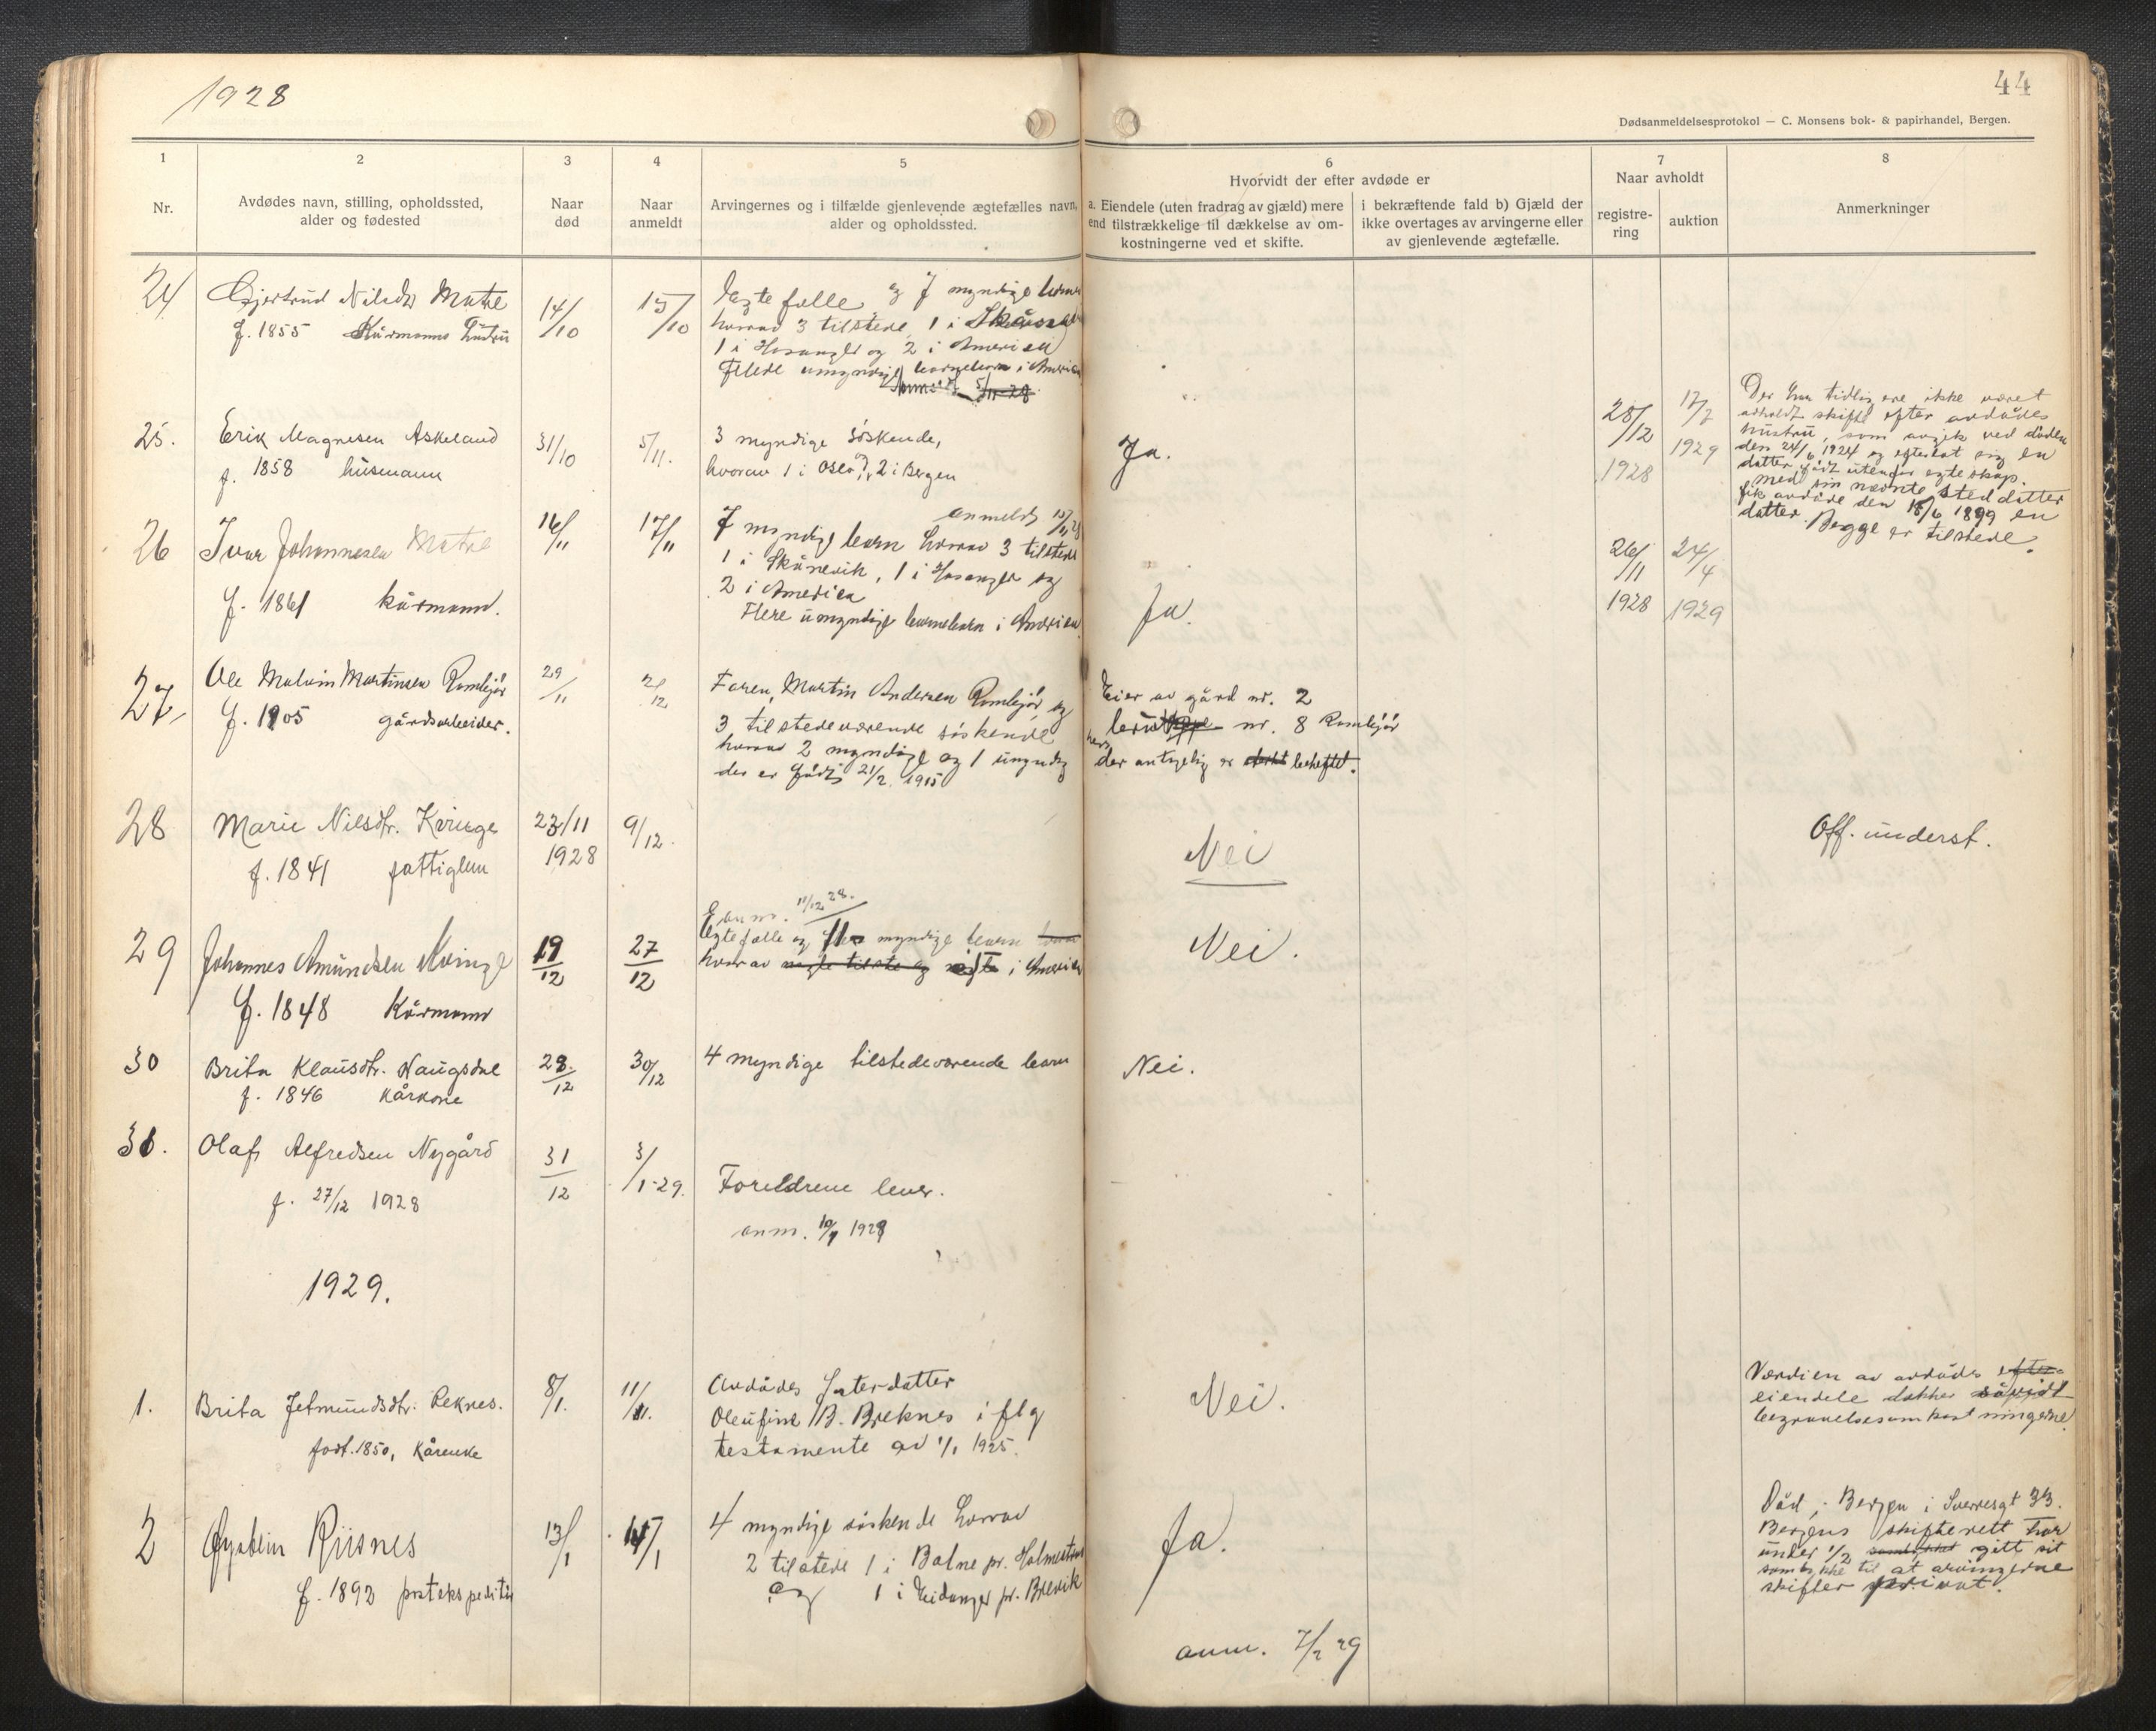 1928
44
Dødsanmeldelsesprotokol — C. Monsens bok- & papirhandel, Bergen.
1
2
3
4
5
6
7
8
Nr.
Avdødes navn, stilling, opholdssted,
alder og fødested
Naar
død
Naar
anmeldt
Arvingernes og i tilfælde gjenlevende ægtefælles navn,
alder og opholdssted.
Hvorvidt der efter avdøde er
a. Eiendele (uten fradrag av gjæld) mere
end tilstrækkelige til dækkelse av om-
kostningerne ved et skifte.
i bekræftende fald b) Gjæld der
ikke overtages av arvingerne eller
av gjenlevende ægtefælle.
Naar avholdt
registre-
ring
auktion
Anmerkninger
24
Gjertrud Nilsdtr Matre
f. 1855 Kårmanns hustru
14/10
15/10
Egtefælle og 7 myndige barn
hvorav 3 tilstede, 1 i Skånevik
1 i Hosanger og 2 i Amerika
Flere umyndige barnebarn i Amerika
5/11-28
25.
Erik Magnesen Askeland
f. 1858 husmann
31/10
5/11.
3 myndige søskende,
hvorav 1 i Oslo, 2 i Bergen
anmeldt 15/11 28
Ja.
28/12
1928
17/7
1929
Der har tidligere ikke været
avholdt skifte efter avdødes
hustru, som avgik ved døden
den 24/6 1924 og efterlot sig en
datter født utenfor egteskap.
med sin nevnte steddatter
fik avdøde den 18/6 1899 en
datter. Begge er tilstede.
26
Ivar Johannesen Matre
f. 1861 kårmann.
16/11
17/11
7 myndige barn hvorav 3 tilstede
1 i Skånevik, 1 i Hosanger og
2 i Amerika
Flere umyndige barnebarn i Amerika
Ja.
26/11
1928
24/4
1929
27
Ole Malvin Martinsen Romlejör
f. 1905 gårdsarbeider.
29/11
2/12
Faren, Martin Andersen Romlejör og
3 tilstedeværende søskende
hvorav 2 myndige og 1 umyndig
der er født 21/2 1915
Eier av gård nr. 2
bruk nr. 8 Romlejör
der antagelig er beheftet.
28
Marie Nilsdtr. Kvinge
f. 1841 fattiglem
23/11
1928
9/12.
Nei
Off. underst.
anm. 11/12 28.
29
Johannes Amundsen Kvinge
f. 1848 Kårmann
19/12
27/12
Egtefælle og flere myndige barn
hvorav i Amerika
Nei.
30
Brita Klausdtr. Haugsdal
f. 1846 kårkone
28/12
30/12
4 myndige tilstedeværende barn
Nei.
31.
Olaf Alfredsen Nygård
f. 27/12 1928
31/12
3/1-29.
Foreldrene lever.
anm. 1929
1929.
1.
Brita Jetmundsdtr. Reknes.
født. 1850, Kårenke
8/1.
11/1.
Avdødes søsterdatter
Oleufine B. Breknes iflg
testamente av 1/1 1925.
Nei.
Værdien av avdødes
eiendele dekker såvidt
begravelsesomkostningerne.
2
Øystein Riisnes
f. 1892 postekspeditør
13/1
15/1
4 myndige søskende hvorav
2 tilstede 1 i Botne pr. Holmestrand
og 1 i Eidanger pr. Brevik
Ja.
Död i Bergen i Sverresgt 33.
Bergens skifterett har
under 1/2 gitt sit
samtykke til at arvingerne
skifter privat.
anm. 7/2 29